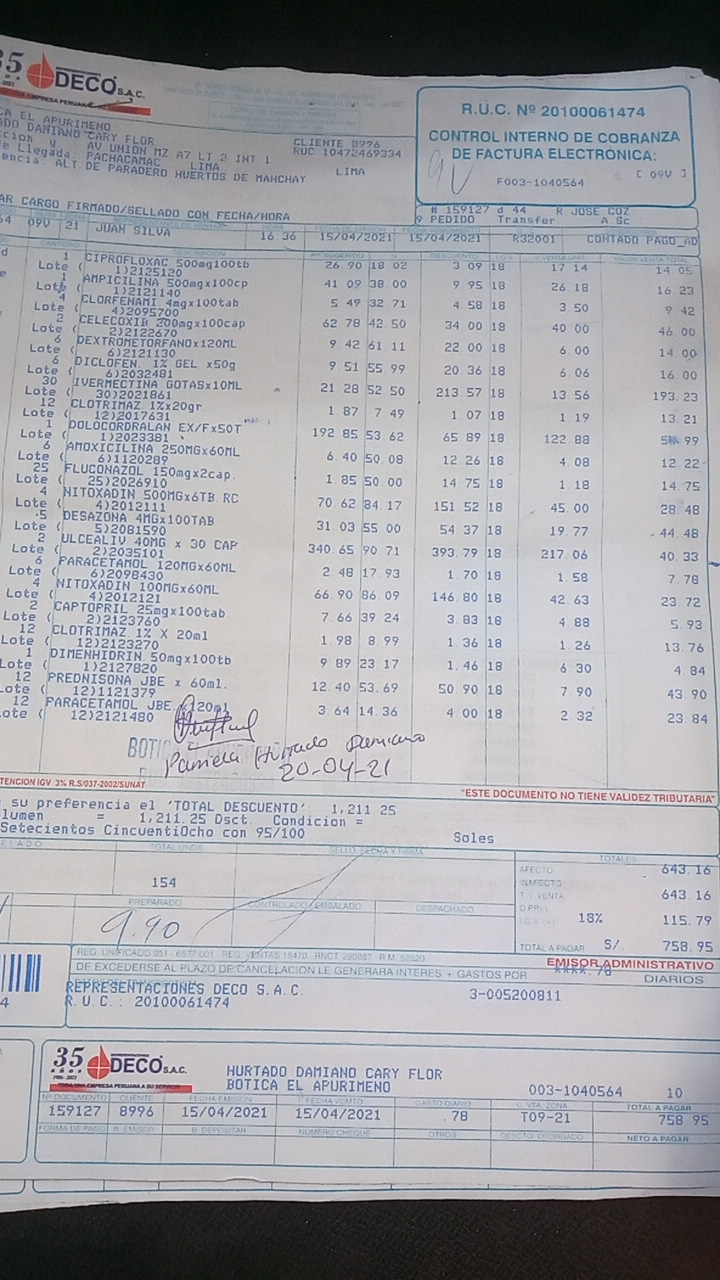 35 DECO S.A.C.
R.U.C. Nº 20100061474
CONTROL INTERNO DE COBRANZA
DE FACTURA ELECTRÓNICA:
[ 09V ]
F003-1040564
CA EL APURIMENO
ADO DAMIANO CARY FLOR
CLIENTE 8996
RUC 10472469334
AV UNION MZ A7 LT 2 INT 1
e Llegada: PACHACAMAC LIMA
LIMA
encia: ALT DE PARADERO HUERTOS DE MANCHAY
AR CARGO FIRMADO/SELLADO CON FECHA/HORA
# 159127 d 44 R JOSE COZ
9 PEDIDO Transfer A Sc
64 09V 21 JUAN SILVA 16 36 15/04/2021 15/04/2021 R32001 CONTADO PAGO_AD
CANTIDAD DESCRIPCION DESCUENTO VALOR VENTA TOTAL
1 CIPROFLOXAC 500mg100tb 26.90 18 02 3 09 18 17 14 14 05
Lote ( 1)2125120
1 AMPICILINA 500mgx100cp 41 09 38 00 9 95 18 26 18 16 23
Lote ( 1)2121140
4 CLORFENAMI 4mgx100tab 5 49 32 71 4 58 18 3 50 9 42
Lote ( 4)2095700
2 CELECOXIB 200mgx100cap 62 78 42 50 34 00 18 40 00 46 00
Lote ( 2)2122670
6 DEXTROMETORFANOx120ML 9 42 61 11 22 00 18 6 00 14 00
Lote ( 6)2121130
6 DICLOFEN 1% GEL x50g 9 51 55 99 20 36 18 6 06 16 00
Lote ( 6)2032481
30 IVERMECTINA GOTASx10ML 21 28 52 50 213 57 18 13 56 193 23
Lote ( 30)2021861
12 CLOTRIMAZ 1%x20gr 1 87 7 49 1 07 18 1 19 13 21
Lote ( 12)2017631
1 DOLOCORDRALAN EX/Fx50T 192 85 53 62 65 89 18 122 88 99
Lote ( 1)2023381
6 AMOXICILINA 250MGx60ML 6 40 50 08 12 26 18 4 08 12 22
Lote ( 6)1120289
25 FLUCONAZOL 150mgx2cap. 1 85 50 00 14 75 18 1 18 14 75
Lote ( 25)2026910
4 NITOXADIN 500MGx6TB RC 70 62 84 17 151 52 18 45 00 28 48
Lote ( 4)2012111
5 DESAZONA 4MGx100TAB 31 03 55 00 54 37 18 19 77 44 48
Lote ( 5)2081590
2 ULCEALIV 40MG x 30 CAP 340 65 90 71 393 79 18 217 06 40 33
Lote ( 2)2035101
6 PARACETAMOL 120MGx60ML 2 48 17 93 1 70 18 1 58 7 78
Lote ( 6)2098430
4 NITOXADIN 100MGx60ML 66 90 86 09 146 80 18 42 63 23 72
Lote ( 4)2012121
2 CAPTOPRIL 25mgx100tab 7 66 39 24 3 83 18 4 88 5 93
Lote ( 2)2123760
12 CLOTRIMAZ 1% X 20ml 1 98 8 99 1 36 18 1 26 13 76
Lote ( 12)2123270
1 DIMENHIDRIN 50mgx100tb 9 89 23 17 1 46 18 6 30 4 84
Lote ( 1)2127820
12 PREDNISONA JBE x 60ml. 12 40 53 69 50 90 18 7 90 43 90
Lote ( 12)1121379
12 PARACETAMOL JBE x120ml 3 64 14 36 4 00 18 2 32 23 84
Lote ( 12)2121480
BOTICA
Pamela Hurtado Damiano
20-04-21
TENCION IGV 3% R.S/037-2002/SUNAT
"ESTE DOCUMENTO NO TIENE VALIDEZ TRIBUTARIA"
su preferencia el 'TOTAL DESCUENTO' 1,211 25
lumen = 1,211.25 Dsct. Condicion =
Setecientos CincuentiOcho con 95/100 Soles
TOTAL UNDS SELLO, FECHA Y FIRMA TOTALES
154
AFECTO 643.16
INAFECTO
T. V. VENTA 643.16
18% 115.79
TOTAL A PAGAR S/ 758.95
PREPARADO CONTROLADO / EMBALADO DESPACHADO
9.90
EMISOR ADMINISTRATIVO
DE EXCEDERSE AL PLAZO DE CANCELACION LE GENERARA INTERES + GASTOS POR ****.78 DIARIOS
REPRESENTACIONES DECO S.A.C. 3-005200811
R.U.C.: 20100061474
35 años DECO S.A.C.
TODA UNA EMPRESA PERUANA A SU SERVICIO
HURTADO DAMIANO CARY FLOR
BOTICA EL APURIMENO
003-1040564 10
Nº DOCUMENTO CLIENTE FECHA EMISION FECHA VCMTO GASTO DIARIO C. VTA. ZONA TOTAL A PAGAR
159127 8996 15/04/2021 15/04/2021 .78 T09-21 758 95
FORMA DE PAGO B. EMISOR B. DEPOSITAR NUMERO CHEQUE OTROS DESCTO. OTORGADO NETO A PAGAR